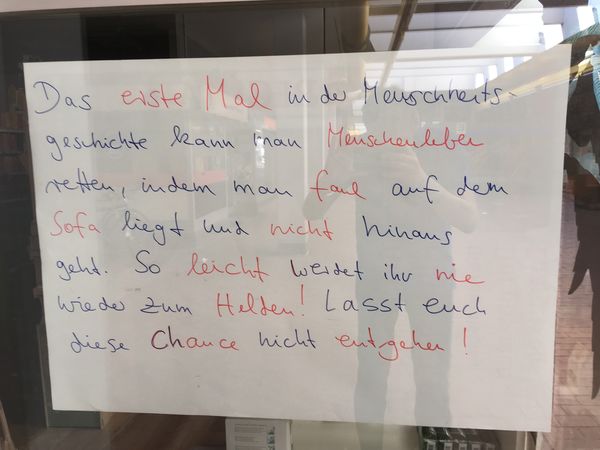 Das erste Mal in der Menschheits-
geschichte kann man Menschenleben
retten, indem man faul auf dem
Sofa liegt und nicht hinaus
geht. So leicht werdet ihr nie
wieder zum Helden! Lasst euch
diese Chance nicht entgehen!